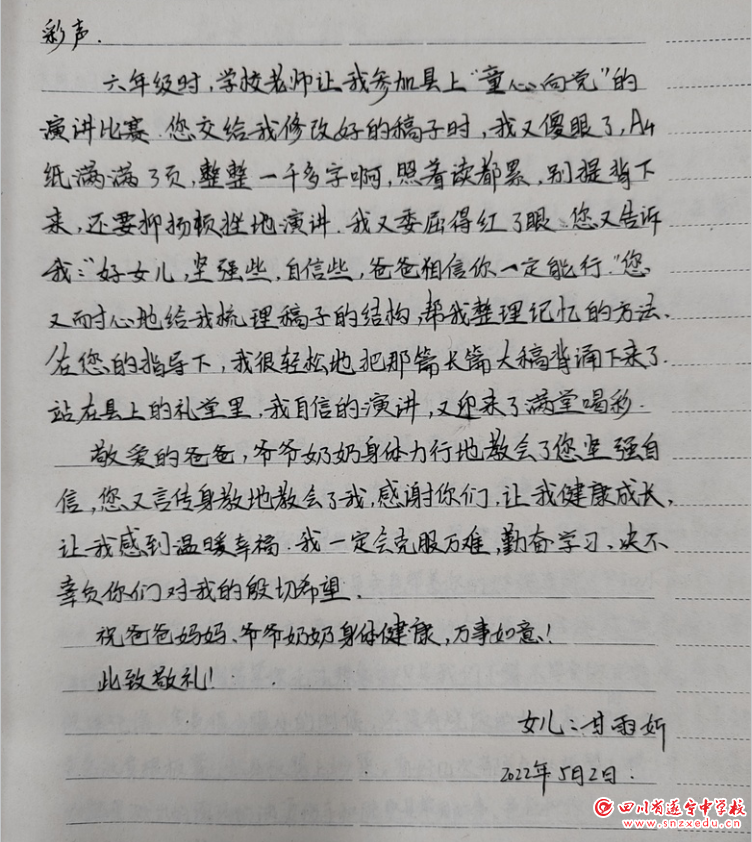 彩声.
六年级时,学校老师让我参加县上“童心向党”的
演讲比赛.您交给我修改好的稿子时,我又傻眼了,A4
纸满满3页,整整一千多字啊,照着读都累,别提背下
来,还要抑扬顿挫地演讲.我又委屈得红了眼.您又告诉
我:“好女儿,坚强些,自信些,爸爸相信你一定能行.”您
又耐心地给我梳理稿子的结构,帮我整理记忆的方法.
在您的指导下,我很轻松地把那篇长篇大稿背诵下来了.
站在县上的礼堂里,我自信的演讲,又迎来了满堂喝彩.
敬爱的爸爸,爷爷奶奶身体力行地教会了您坚强自
信,您又言传身教地教会了我,感谢你们,让我健康成长,
让我感到温暖幸福.我一定会克服万难,勤奋学习、决不
辜负你们对我的殷切希望.
祝爸爸妈妈、爷爷奶奶身体健康,万事如意!
此致敬礼!
女儿:甘雨妡
2022年5月2日.
四川省遂宁中学校
www.snzxedu.cn